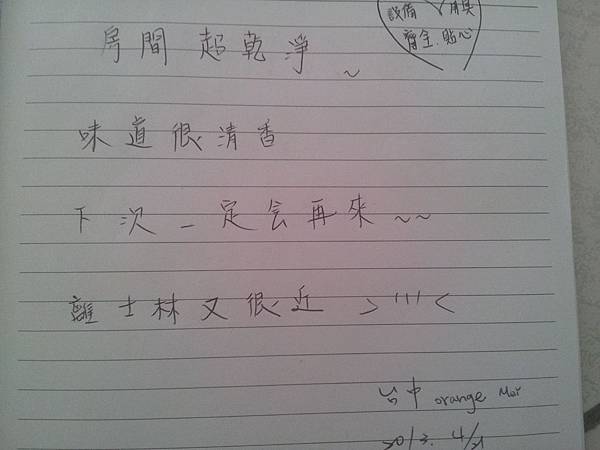 設備 用具
齊全.貼心
房間 超乾淨~
味道很清香
下次一定会再來~~
離士林又很近 >'''<
台中 orange Mor
2013. 4/21